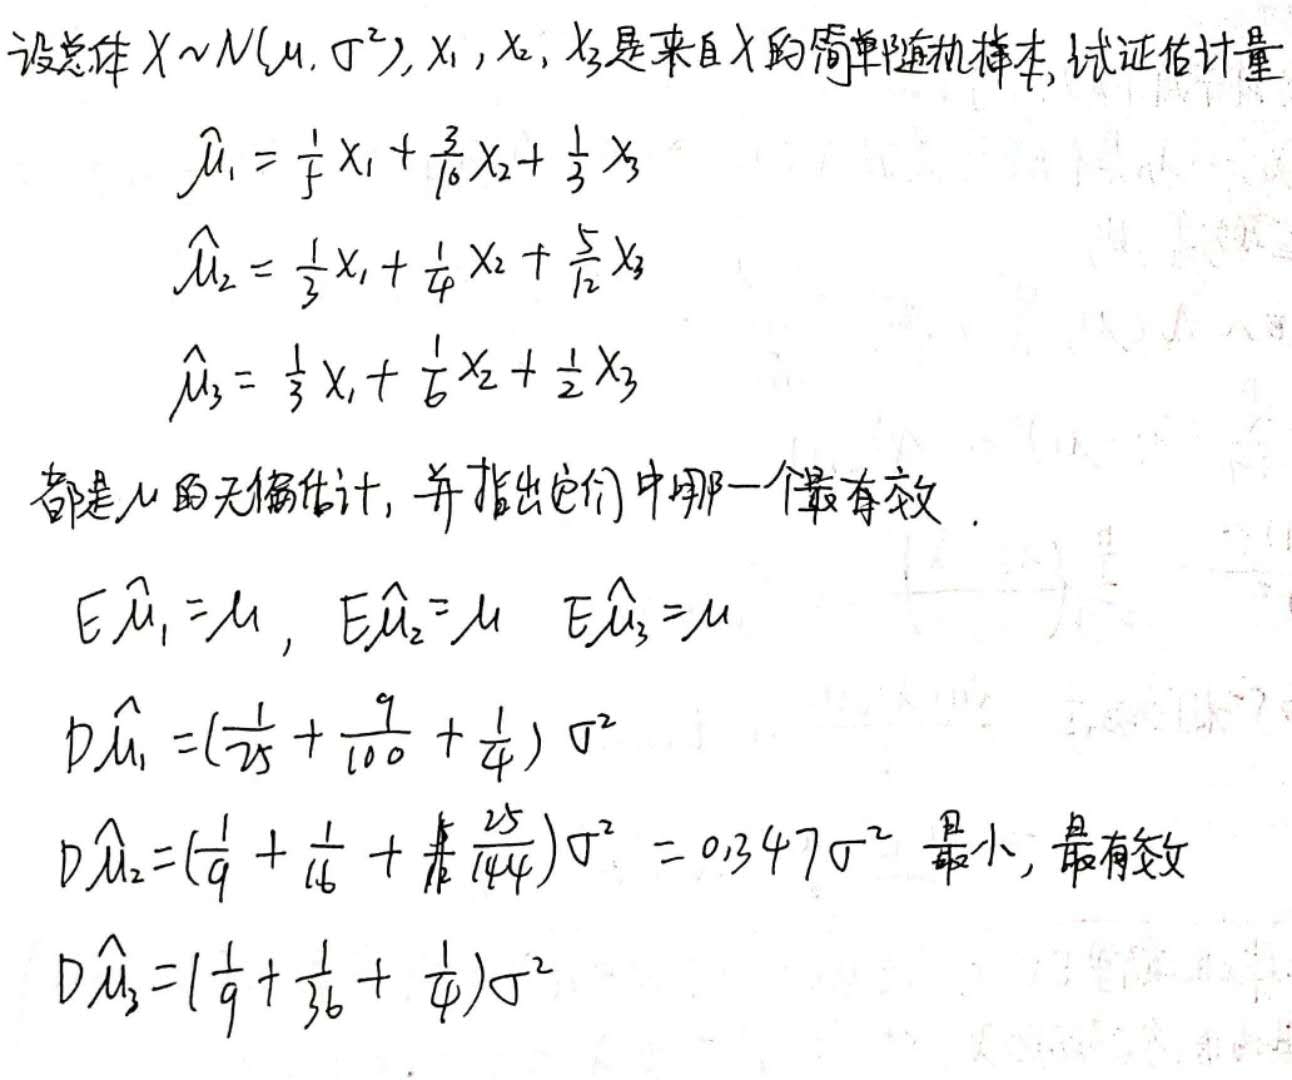 设总体 X~N(μ, σ²), X₁, X₂, X₃是来自X的简单随机样本, 试证估计量
μ̂₁ = 1/5 X₁ + 3/10 X₂ + 1/3 X₃
μ̂₂ = 1/3 X₁ + 1/4 X₂ + 5/12 X₃
μ̂₃ = 1/3 X₁ + 1/6 X₂ + 1/2 X₃
都是μ的无偏估计, 并指出它们中哪一个最有效.
Eμ̂₁ = μ, Eμ̂₂ = μ Eμ̂₃ = μ
Dμ̂₁ = (1/25 + 9/100 + 1/4) σ²
Dμ̂₂ = (1/9 + 1/16 + 25/144) σ² = 0.347σ² 最小, 最有效
Dμ̂₃ = (1/9 + 1/36 + 1/4) σ²